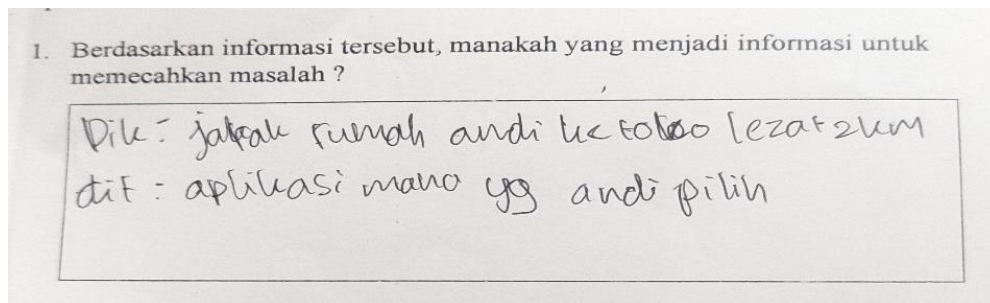 1. Berdasarkan informasi tersebut, manakah yang menjadi informasi untuk
memecahkan masalah ?
Dik : jarak rumah andi ke toko lezat 2km
dit : aplikasi mana yg andi pilih